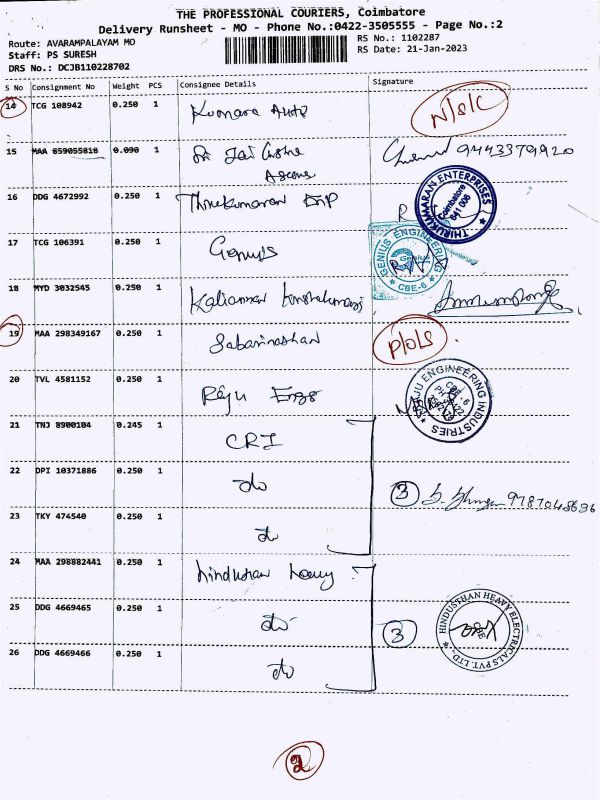 THE PROFESSIONAL COURIERS, Coimbatore
Delivery Runsheet - MO - Phone No.:0422-3505555 - Page No.:2
Route: AVARAMPALAYAM MO
RS No.: 1102287
Staff: PS SURESH
RS Date: 21-Jan-2023
DRS No.: DCJB110228702
S No Consignment No Weight PCS Consignee Details Signature
14 TCG 108942 0.250 1 Kumara Auto N/S/C
15 MAA 859055818 0.090 1 Sri Jai 9443379920
16 DDG 4672992 0.250 1 Thirukumaran Enp
THIRUKUMARAN ENTERPRISES Coimbatore 641 006
17 TCG 106391 0.250 1 Genius
GENIUS ENGINEERING CBE-6
18 MYD 3032545 0.250 1
19 MAA 298349167 0.250 1 Sabarinathan P/O/S
20 TVL 4581152 0.250 1 Raju Engg
RAJU ENGINEERING INDUSTRIES CBE - 6
21 TNJ 8900104 0.245 1 CRI
22 DPI 10371886 0.250 1 do
3 9787048636
23 TKY 474540 0.250 1 do
24 MAA 298882441 0.250 1 hindusthan heavy
25 DDG 4669465 0.250 1 do
3 HINDUSTHAN HEAVY ELECTRICALS PVT. LTD., CBE
26 DDG 4669466 0.250 1 do
2